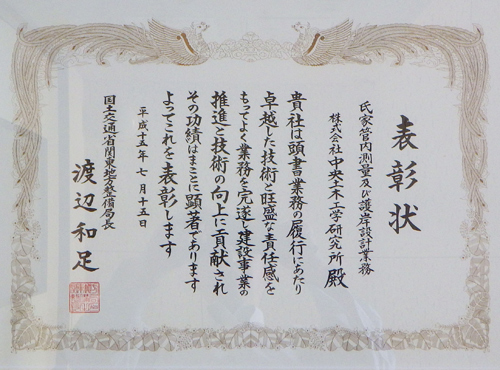 表彰状
氏家管内測量及び護岸設計業務
株式会社中央土木工学研究所殿
貴社は頭書業務の履行にあたり
卓越した技術と旺盛な責任感を
もってよく業務を完遂し建設事業の
推進と技術の向上に貢献され
その功績はまことに顕著であります
よってこれを表彰します
平成十五年七月十五日
国土交通省関東地方整備局長
渡辺和足